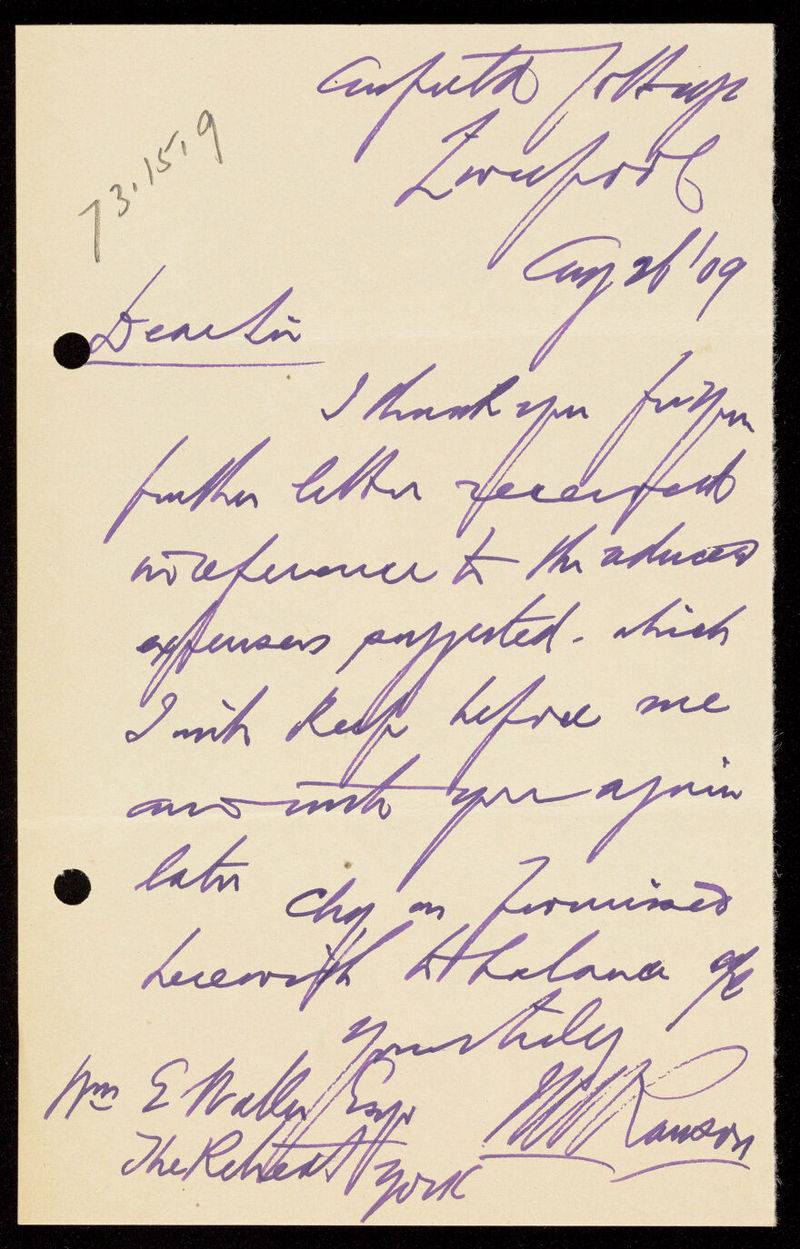 Anfield Cottage
Liverpool
Aug 26 '09
73.15.9
Dear Sir
I thank you for your
further letter received
in reference to the reduced
expenses suggested - which
I will keep before me
and write you again
later
Chq as promised
herewith to balance a/c
Yours truly
Ranson
Wm E Waller Esqr
The Retreat York